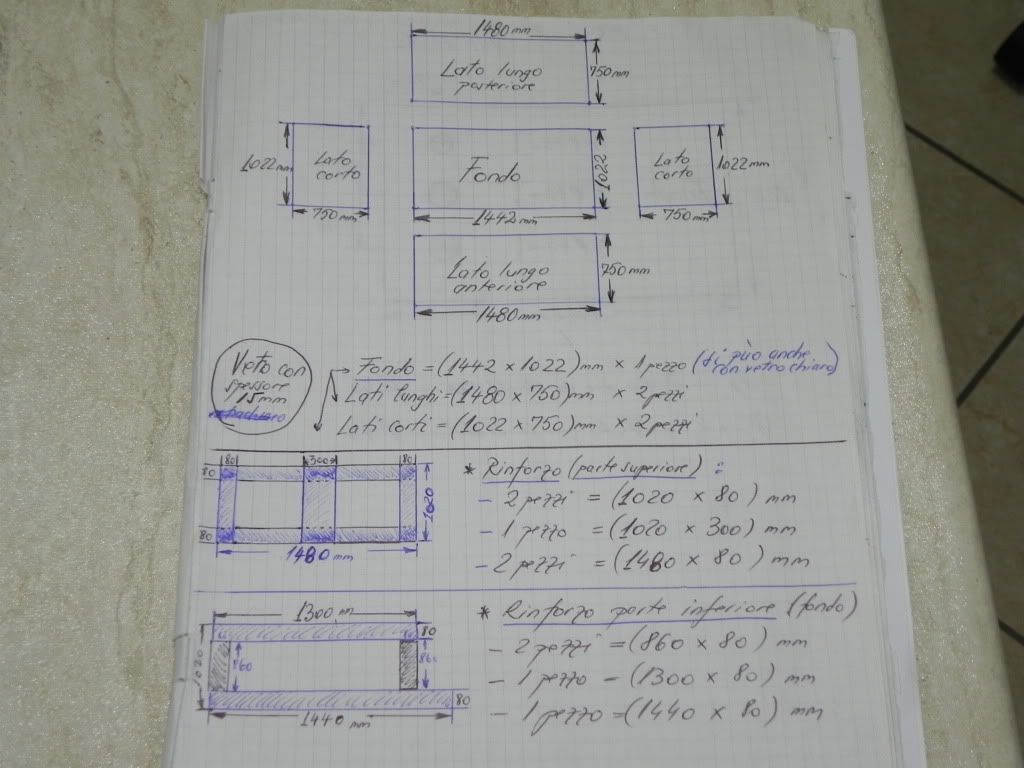 1480mm
Lato lungo
posteriore
750mm
1022mm
Lato
corto
750mm
Fondo
1022
1442mm
Lato
corto
1022mm
750mm
Lato lungo
anteriore
750mm
1480mm
Vetro con
spessore
15mm
Fondo = (1442 x 1022)mm x 1 pezzo (si può anche
con vetro chiaro)
Lati lunghi = (1480 x 750)mm x 2 pezzi
Lati corti = (1022 x 750)mm x 2 pezzi
80 300 80
80
80
1020
1480 mm
* Rinforzo (parte superiore) :
- 2 pezzi = (1020 x 80) mm
- 1 pezzo = (1020 x 300) mm
- 2 pezzi = (1480 x 80) mm
1300 m
80
1020
860
860
80
1440 mm
* Rinforzo parte inferiore (fondo)
- 2 pezzi = (860 x 80) mm
- 1 pezzo = (1300 x 80) mm
- 1 pezzo = (1440 x 80) mm